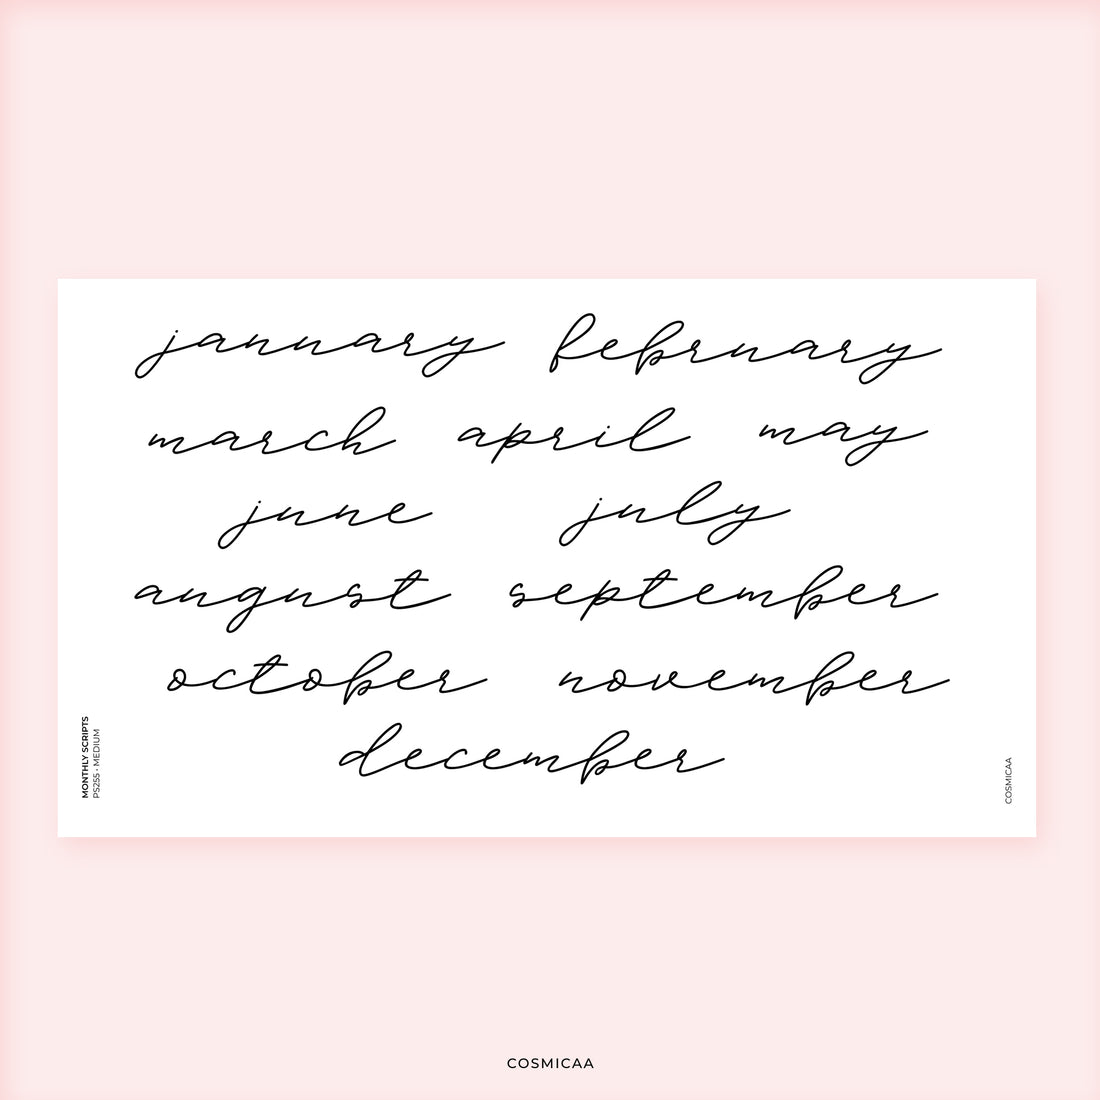 january february
march april may
june july
august september
october november
december
MONTHLY SCRIPTS
PS255 • MEDIUM
COSMICAA
COSMICAA